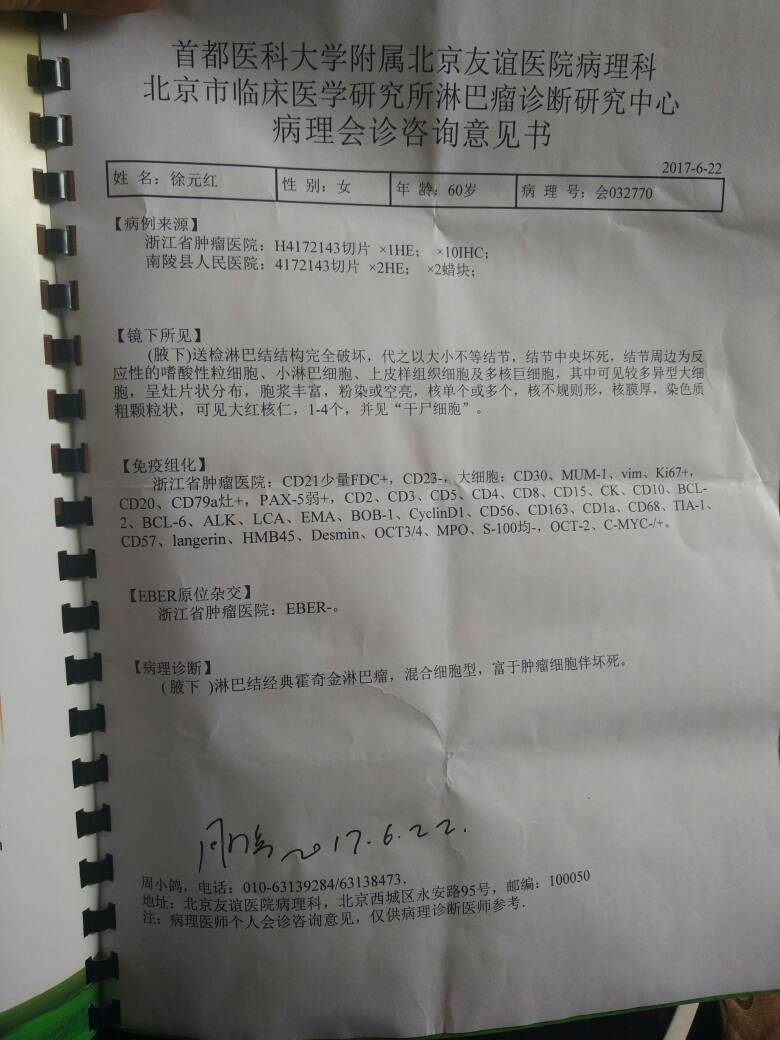 首都医科大学附属北京友谊医院病理科
北京市临床医学研究所淋巴瘤诊断研究中心
病理会诊咨询意见书
2017-6-22
姓 名：徐元红 性 别：女 年 龄：60岁 病 理 号：会032770
【病例来源】
浙江省肿瘤医院：H4172143切片 ×1HE； ×10IHC；
南陵县人民医院：4172143切片 ×2HE； ×2蜡块；
【镜下所见】
(腋下)送检淋巴结结构完全破坏，代之以大小不等结节，结节中央坏死，结节周边为反
应性的嗜酸性粒细胞、小淋巴细胞、上皮样组织细胞及多核巨细胞，其中可见较多异型大细
胞，呈灶片状分布，胞浆丰富，粉染或空亮，核单个或多个，核不规则形，核膜厚，染色质
粗颗粒状，可见大红核仁，1-4个，并见“干尸细胞”。
【免疫组化】
浙江省肿瘤医院：CD21少量FDC+，CD23-，大细胞：CD30、MUM-1、vim、Ki67+，
CD20、CD79a灶+，PAX-5弱+，CD2、CD3、CD5、CD4、CD8、CD15、CK、CD10、BCL-
2、BCL-6、ALK、LCA、EMA、BOB-1、CyclinD1、CD56、CD163、CD1a、CD68、TIA-1、
CD57、langerin、HMB45、Desmin、OCT3/4、MPO、S-100均-，OCT-2、C-MYC-/+。
【EBER原位杂交】
浙江省肿瘤医院：EBER-。
【病理诊断】
(腋下 )淋巴结经典霍奇金淋巴瘤，混合细胞型，富于肿瘤细胞伴坏死。
2017.6.22.
周小鸽，电话：010-63139284/63138473.
地址：北京友谊医院病理科，北京西城区永安路95号，邮编：100050
注：病理医师个人会诊咨询意见，仅供病理诊断医师参考.